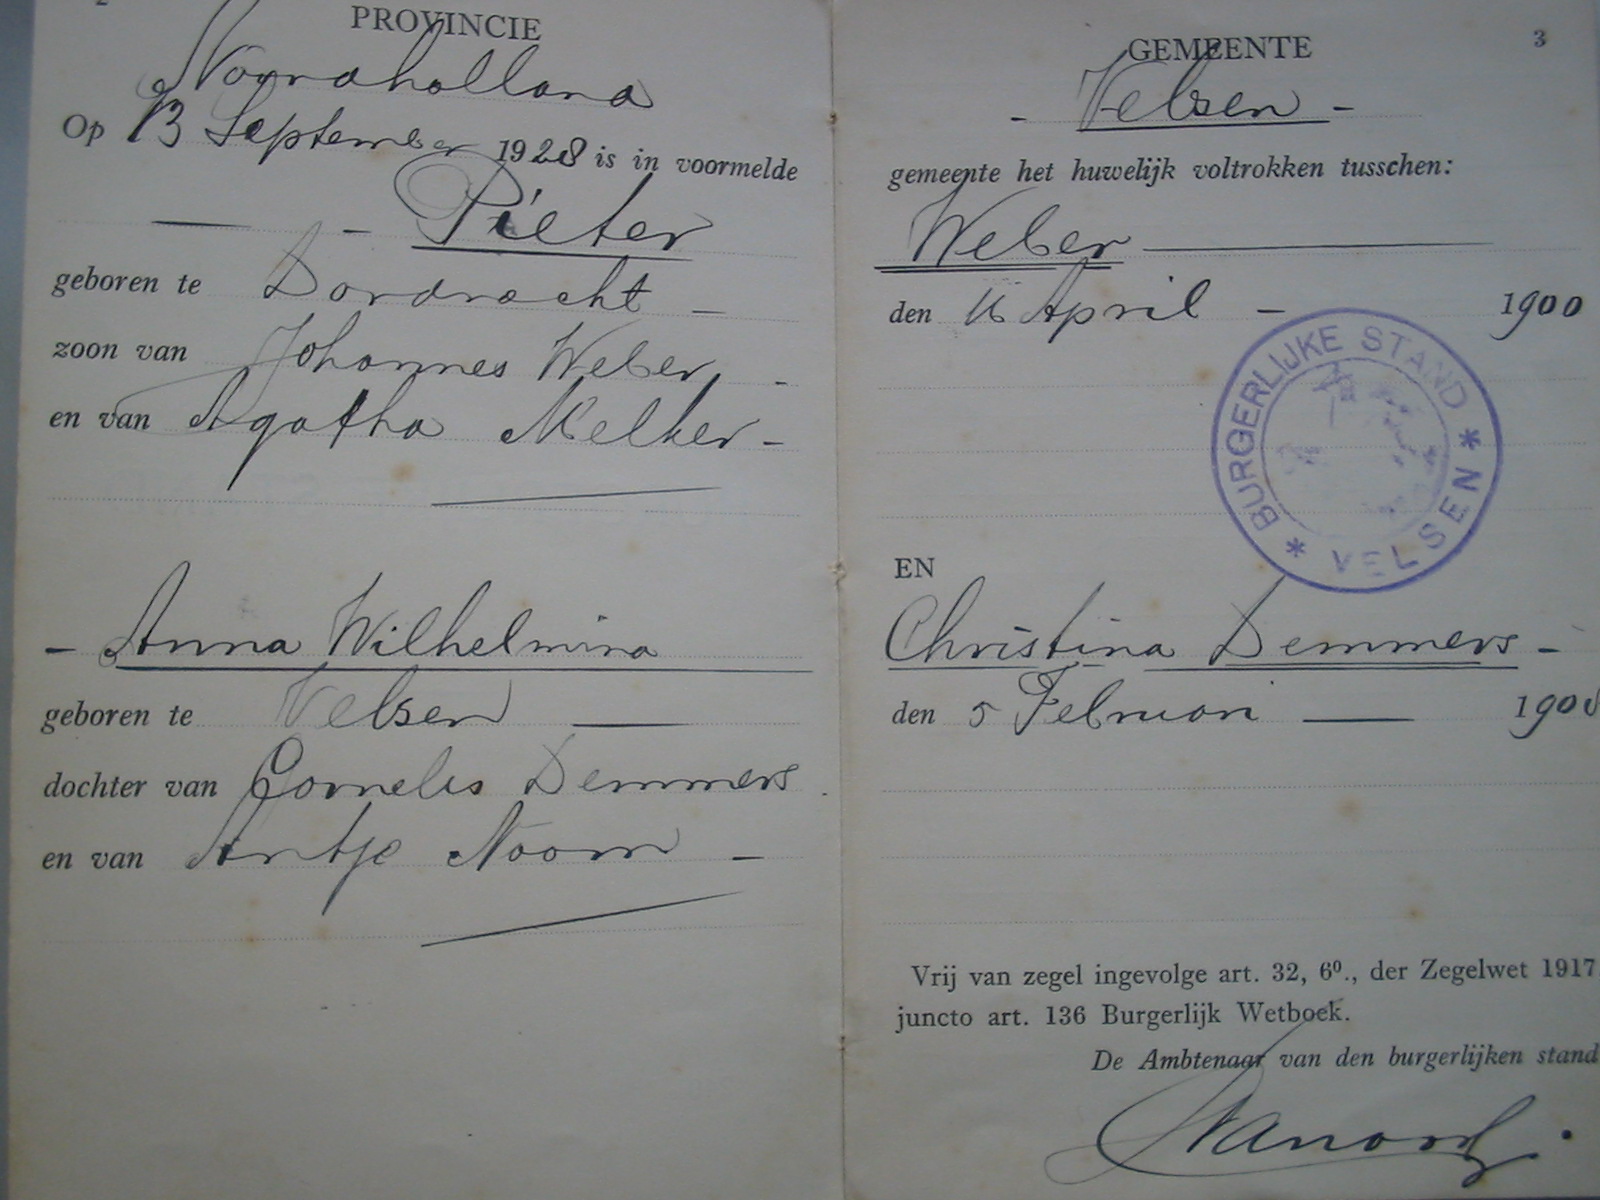 PROVINCIE
Noordholland
Op 13 September 1928 is in voormelde
— - Pieter
geboren te Dordrecht -
zoon van Johannes Weber, -
en van Agatha Melker -
- Anna Wilhelmina
geboren te Velsen —
dochter van Cornelis Demmers.
en van Antje Noom -
3
GEMEENTE
- Velsen -
gemeente het huwelijk voltrokken tusschen:
Weber —
den 16 April - 1900
BURGERLIJKE STAND * VELSEN *
EN
Christina Demmers -
den 5 Februari — 190
Vrij van zegel ingevolge art. 32, 6⁰., der Zegelwet 1917
juncto art. 136 Burgerlijk Wetboek.
De Ambtenaar van den burgerlijken stand